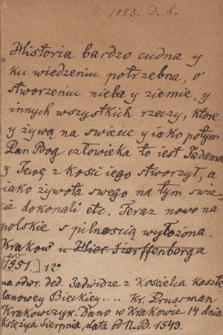 1883. D. 8.
Historia bardzo cudna y
ku wiedzeniu potrzebna, o
stworzeniu nieba y ziemie, y
innych wszystkich rzeczy, ktore
y żywą na świecie y iako potym
Pan Bog człowieka to iest Jadama
y Jewę z kości iego stworzył, a
iako żywota swego na tym świe-
cie dokonali etc. Teraz nowo na
polskie s pilnością wyłożona.
Kraków u Hier. Szarffenberga
[1551.] 12°
na odwr. ded. Jadwidze z Kosielca kaszte-
lanowey Bieckiey.... Kr. Prussman
Krakowczyk. Dano w Krakowie 14 dnia
Księżyca Sierpnia, data od N. Bd. 1543.